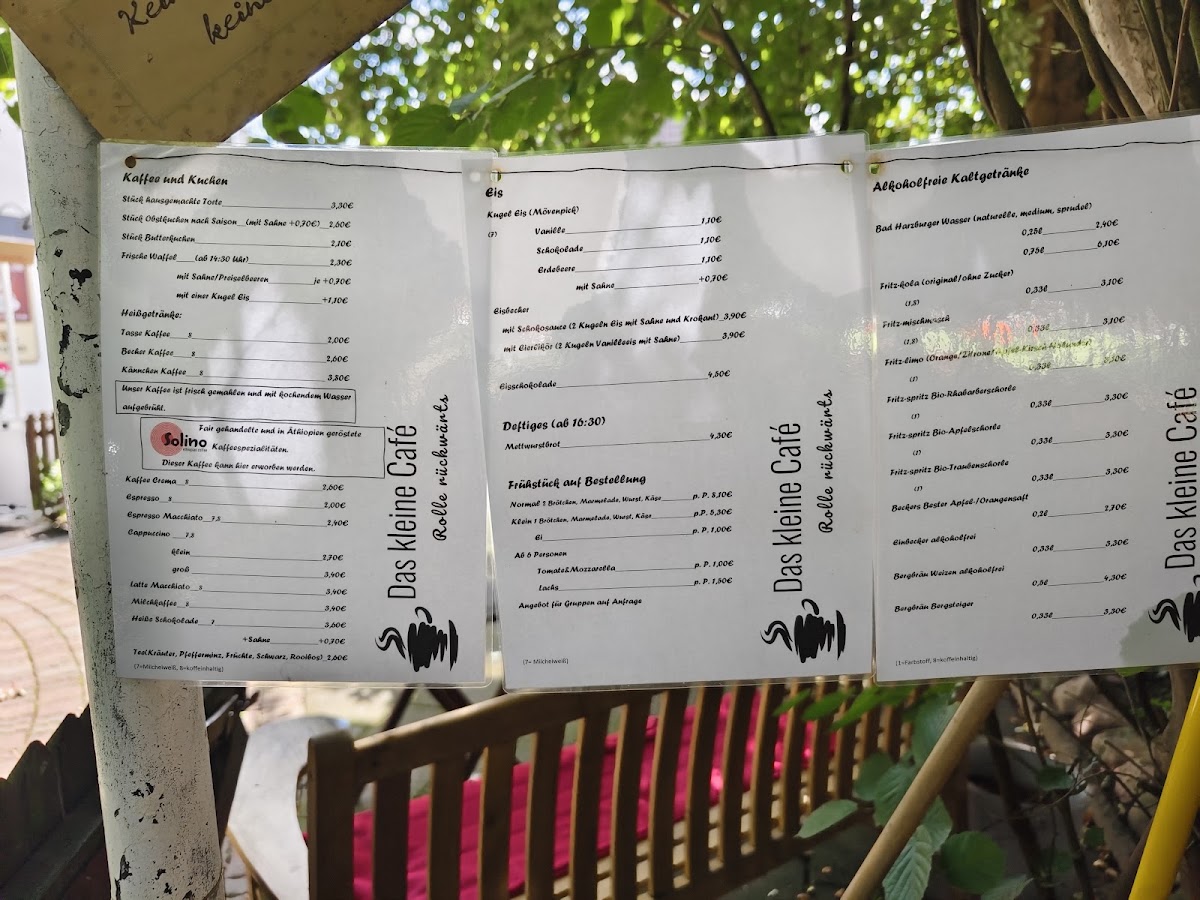 keine
Kaffee und Kuchen
Stück hausgemachte Torte 3,30€
Stück Obstkuchen nach Saison (mit Sahne +0,70€) 2,60€
Stück Butterkuchen 2,10€
Frische Waffel (ab 14:30 Uhr) 2,30€
mit Sahne/Preiselbeeren je +0,70€
mit einer Kugel Eis +1,10€
Heißgetränke:
Tasse Kaffee 8 2,00€
Becher Kaffee 8 2,60€
Kännchen Kaffee 8 3,30€
Unser Kaffee ist frisch gemahlen und mit kochendem Wasser
aufgebrüht.
Solino
Fair gehandelte und in Äthiopien geröstete
Kaffeespezialitäten.
Dieser Kaffee kann hier erworben werden.
Kaffee Crema 8 2,60€
Espresso 8 2,00€
Espresso Macchiato 7,8 2,40€
Cappuccino 7,8
klein 2,70€
groß 3,40€
Latte Macchiato 8 3,40€
Milchkaffee 8 3,40€
Heiße Schokolade 7 3,60€
+Sahne +0,70€
Tee(Kräuter, Pfefferminz, Früchte, Schwarz, Rooibos) 2,60€
(7=Milcheiweiß, 8=koffeinhaltig)
Das kleine Café
Rolle rückwärts
Eis
Kugel Eis (Mövenpick)
(7) Vanille 1,10€
Schokolade 1,10€
Erdbeere 1,10€
mit Sahne +0,70€
Eisbecher
mit Schokosauce (2 Kugeln Eis mit Sahne und Krokant) 3,90€
mit Eierlikör (2 Kugeln Vanilleeis mit Sahne) 3,90€
Eisschokolade 4,50€
Deftiges (ab 16:30)
Mettwurstbrot 4,30€
Frühstück auf Bestellung
Normal 2 Brötchen, Marmelade, Wurst, Käse p. P. 8,10€
Klein 1 Brötchen, Marmelade, Wurst, Käse p.P. 5,30€
Ei p. P. 1,00€
Ab 6 Personen
Tomate&Mozzarella p. P. 1,00€
Lachs p. P. 1,50€
Angebot für Gruppen auf Anfrage
(7= Milcheiweiß)
Das kleine Café
Rolle rückwärts
Alkoholfreie Kaltgetränke
Bad Harzburger Wasser (naturelle, medium, sprudel)
0,25l 2,40€
0,75l 6,10€
Fritz-kola (original/ohne Zucker)
(1,8) 0,33l 3,10€
Fritz-mischmasch
(1,8) 0,33l 3,10€
Fritz-limo (Orange/Zitrone/Apfel-Kirsch-Holunder)
(1) 0,33l 3,30€
Fritz-spritz Bio-Rhabarberschorle
(1) 0,33l 3,30€
Fritz-spritz Bio-Apfelschorle
(1) 0,33l 3,30€
Fritz-spritz Bio-Traubenschorle
(1) 0,33l 3,30€
Beckers Bester Apfel-/Orangensaft
0,2l 2,70€
Einbecker alkoholfrei
0,33l 3,30€
Bergbräu Weizen alkoholfrei
0,5l 4,30€
Bergbräu Bergsteiger
0,33l 3,30€
(1=Farbstoff, 8=koffeinhaltig)
Das kleine Café